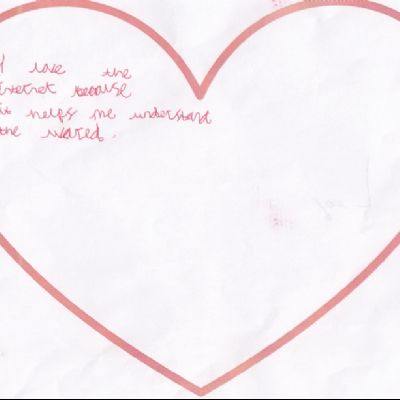 I love the
internet because
it helps me understand
the wored.